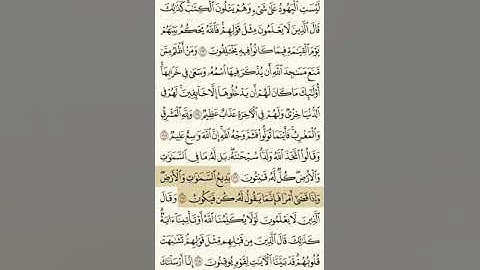 لَيْسَتِ الْيَهُودُ عَلَىٰ شَيْءٍ وَهُمْ يَتْلُونَ الْكِتَابَ ۗ كَذَٰلِكَ
قَالَ الَّذِينَ لَا يَعْلَمُونَ مِثْلَ قَوْلِهِمْ ۚ فَاللَّهُ يَحْكُمُ بَيْنَهُمْ
يَوْمَ الْقِيَامَةِ فِيمَا كَانُوا فِيهِ يَخْتَلِفُونَ ۝ وَمَنْ أَظْلَمُ مِمَّن
مَّنَعَ مَسَاجِدَ اللَّهِ أَن يُذْكَرَ فِيهَا اسْمُهُ وَسَعَىٰ فِي خَرَابِهَا ۚ
أُولَٰئِكَ مَا كَانَ لَهُمْ أَن يَدْخُلُوهَا إِلَّا خَائِفِينَ ۚ لَهُمْ فِي
الدُّنْيَا خِزْيٌ وَلَهُمْ فِي الْآخِرَةِ عَذَابٌ عَظِيمٌ ۝ وَلِلَّهِ الْمَشْرِقُ
وَالْمَغْرِبُ ۚ فَأَيْنَمَا تُوَلُّوا فَثَمَّ وَجْهُ اللَّهِ ۚ إِنَّ اللَّهَ وَاسِعٌ عَلِيمٌ ۝
وَقَالُوا اتَّخَذَ اللَّهُ وَلَدًا ۗ سُبْحَانَهُ ۖ بَل لَّهُ مَا فِي السَّمَاوَاتِ
وَالْأَرْضِ ۖ كُلٌّ لَّهُ قَانِتُونَ ۝ بَدِيعُ السَّمَاوَاتِ وَالْأَرْضِ ۖ
وَإِذَا قَضَىٰ أَمْرًا فَإِنَّمَا يَقُولُ لَهُ كُن فَيَكُونُ ۝ وَقَالَ
الَّذِينَ لَا يَعْلَمُونَ لَوْلَا يُكَلِّمُنَا اللَّهُ أَوْ تَأْتِينَا آيَةٌ ۗ
كَذَٰلِكَ قَالَ الَّذِينَ مِن قَبْلِهِم مِّثْلَ قَوْلِهِمْ ۘ تَشَابَهَتْ
قُلُوبُهُمْ ۗ قَدْ بَيَّنَّا الْآيَاتِ لِقَوْمٍ يُوقِنُونَ ۝ إِنَّا أَرْسَلْنَاكَ